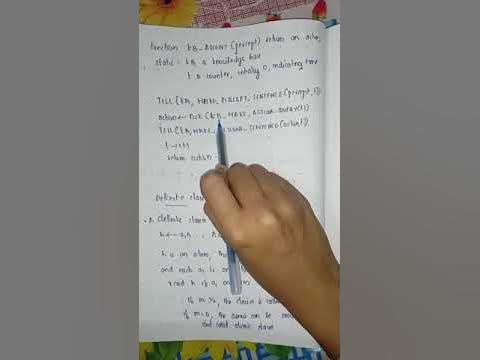 function KB-AGENT (percept) returns an action
static: KB, a knowledge base
t, a counter, initially 0, indicating time
TELL (KB, MAKE_PERCEPT_SENTENCE (percept, t))
action ← ASK (KB, MAKE_ACTION_QUERY(t))
TELL (KB, MAKE_ SENTENCE (action, t))
t ← t+1
return action
Definite clause
A definite clause
h ← a1
h is an atom, the
and each ai is an
read h if a1 and
If m>0, the clause is
If m=0, the clause can be
and called atomic clause